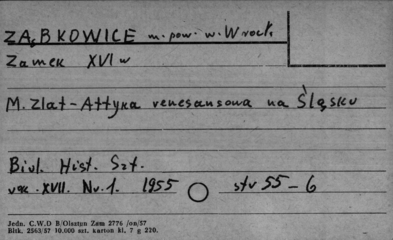 ZĄBKOWICE m. pow. w. Wrocł.
Zamek XVI w
M. Zlat - Attyka renesansowa na Śląsku
Biul. Hist. Szt.
rok. XVII. Nr. 1. 1955 str 55 - 6
Jedn. C.W.D B/Olsztyn Zam 2776 /on/57
Bltk. 2563/57 10.000 szt. karton kl. 7 g 220.